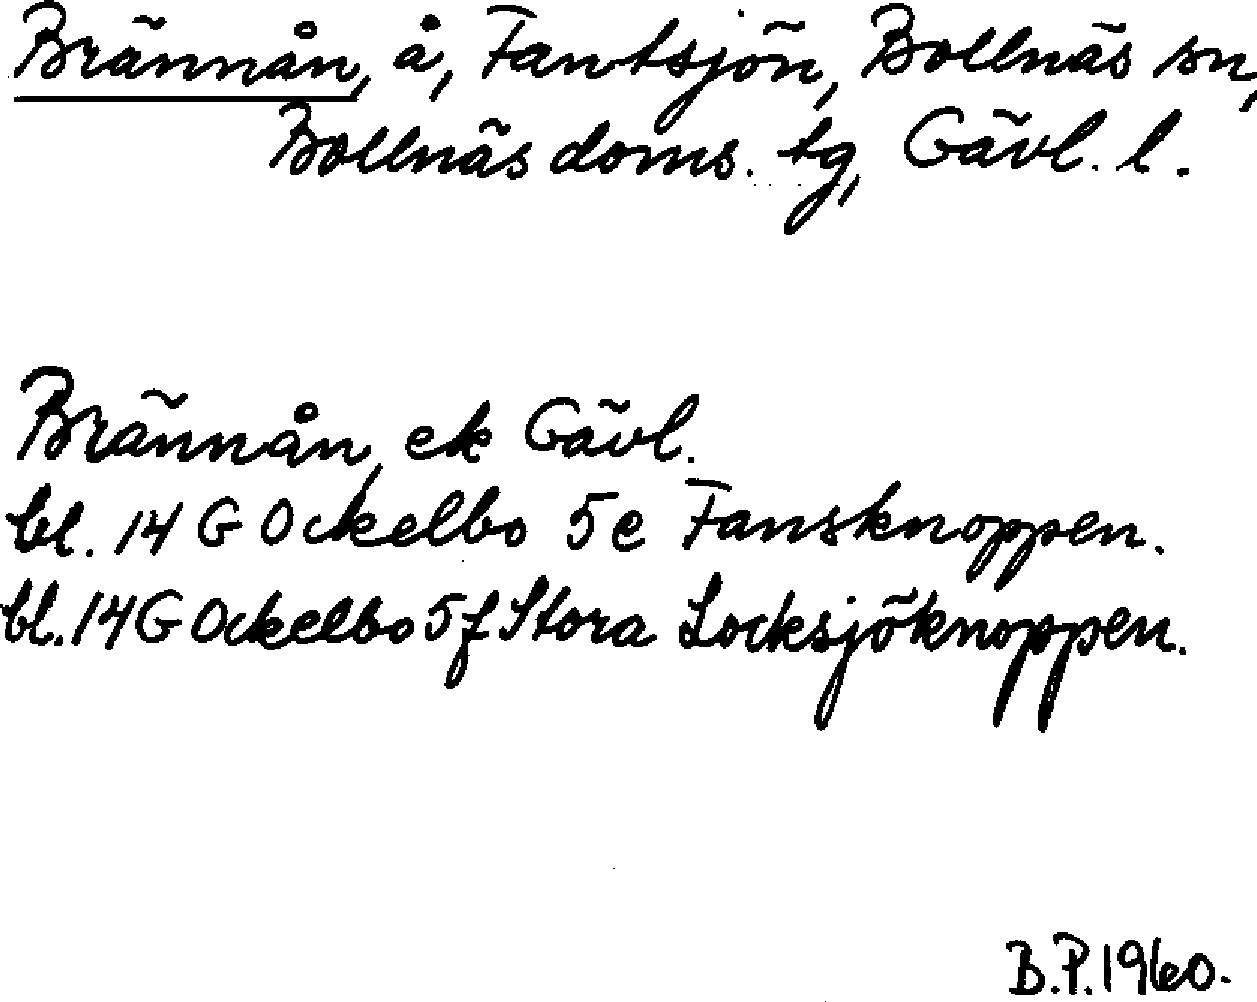 Brännån, å, Fantsjön, Bollnäs sn,
Bollnäs doms. tg, Gävl. l.
Brännån, ek Gävl.
bl. 14 G Ockelbo 5 e Fansknoppen.
bl. 14 G Ockelbo 5 f Stora Locksjöknoppen.
B.P. 1960.